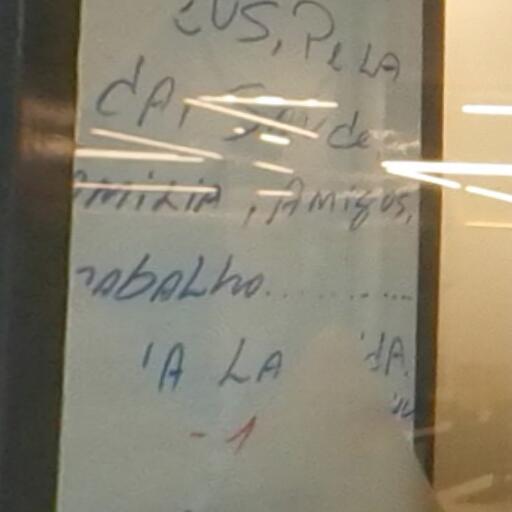 EUS, PELA
dA, SAUde
AMiLiA, AMigOS,
RABALHO..........
'A LA dA.
-1